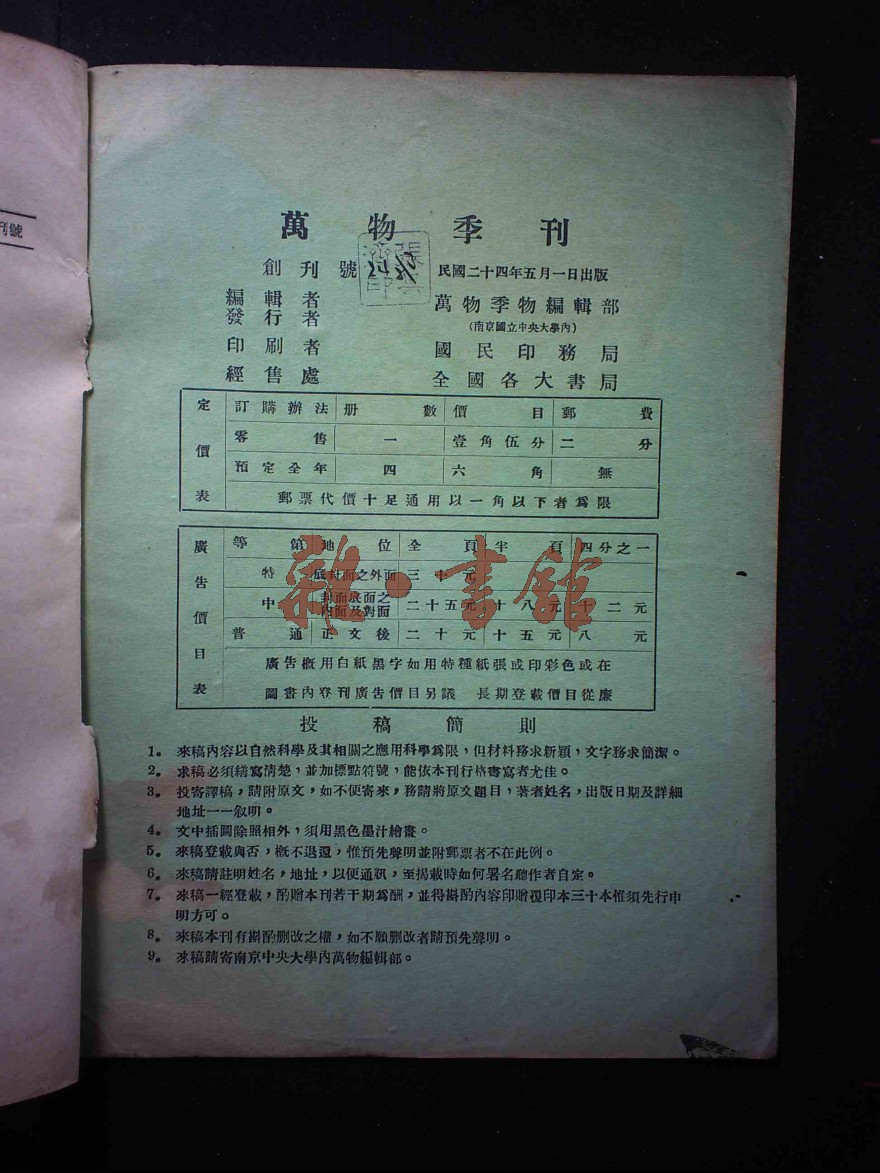 刊號
萬物季刊
創刊號 民國二十四年五月一日出版
編輯者 萬物季物編輯部
發行者 (南京國立中央大學內)
印刷者 國民印務局
經售處 全國各大書局
定價表
訂購辦法 册數 價目 郵費
零售 一 壹角伍分 二分
預定全年 四 六角 無
郵票代價十足通用以一角以下者爲限
廣告價目表
等第 地位 全頁 半頁 四分之一
特 底封面之外面 三十元
中 封面底面之內面及對面 二十五元 十八元 十二元
普通 正文後 二十元 十五元 八元
廣告概用白紙黑字如用特種紙張或印彩色或在
圖書內登刊廣告價目另議 長期登載價目從廉
雜·書館
投稿簡則
1。 來稿內容以自然科學及其相關之應用科學爲限，但材料務求新穎，文字務求簡潔。
2。 求稿必須繕寫清楚，並加標點符號，能依本刊行格書寫者尤佳。
3。 投寄譯稿，請附原文，如不便寄來，務請將原文題目，著者姓名，出版日期及詳細
地址一一叙明。
4。 文中插圖除照相外，須用黑色墨汁繪畫。
5。 來稿登載與否，概不退還，惟預先聲明並附郵票者不在此例。
6。 來稿請註明姓名，地址，以便通訊，至揭載時如何署名聽作者自定。
7。 來稿一經登載，酌贈本刊若干期爲酬，並得斟酌內容印贈覆印本三十本惟須先行申
明方可。
8。 來稿本刊有斟酌删改之權，如不願删改者請預先聲明。
9。 來稿請寄南京中央大學內萬物編輯部。